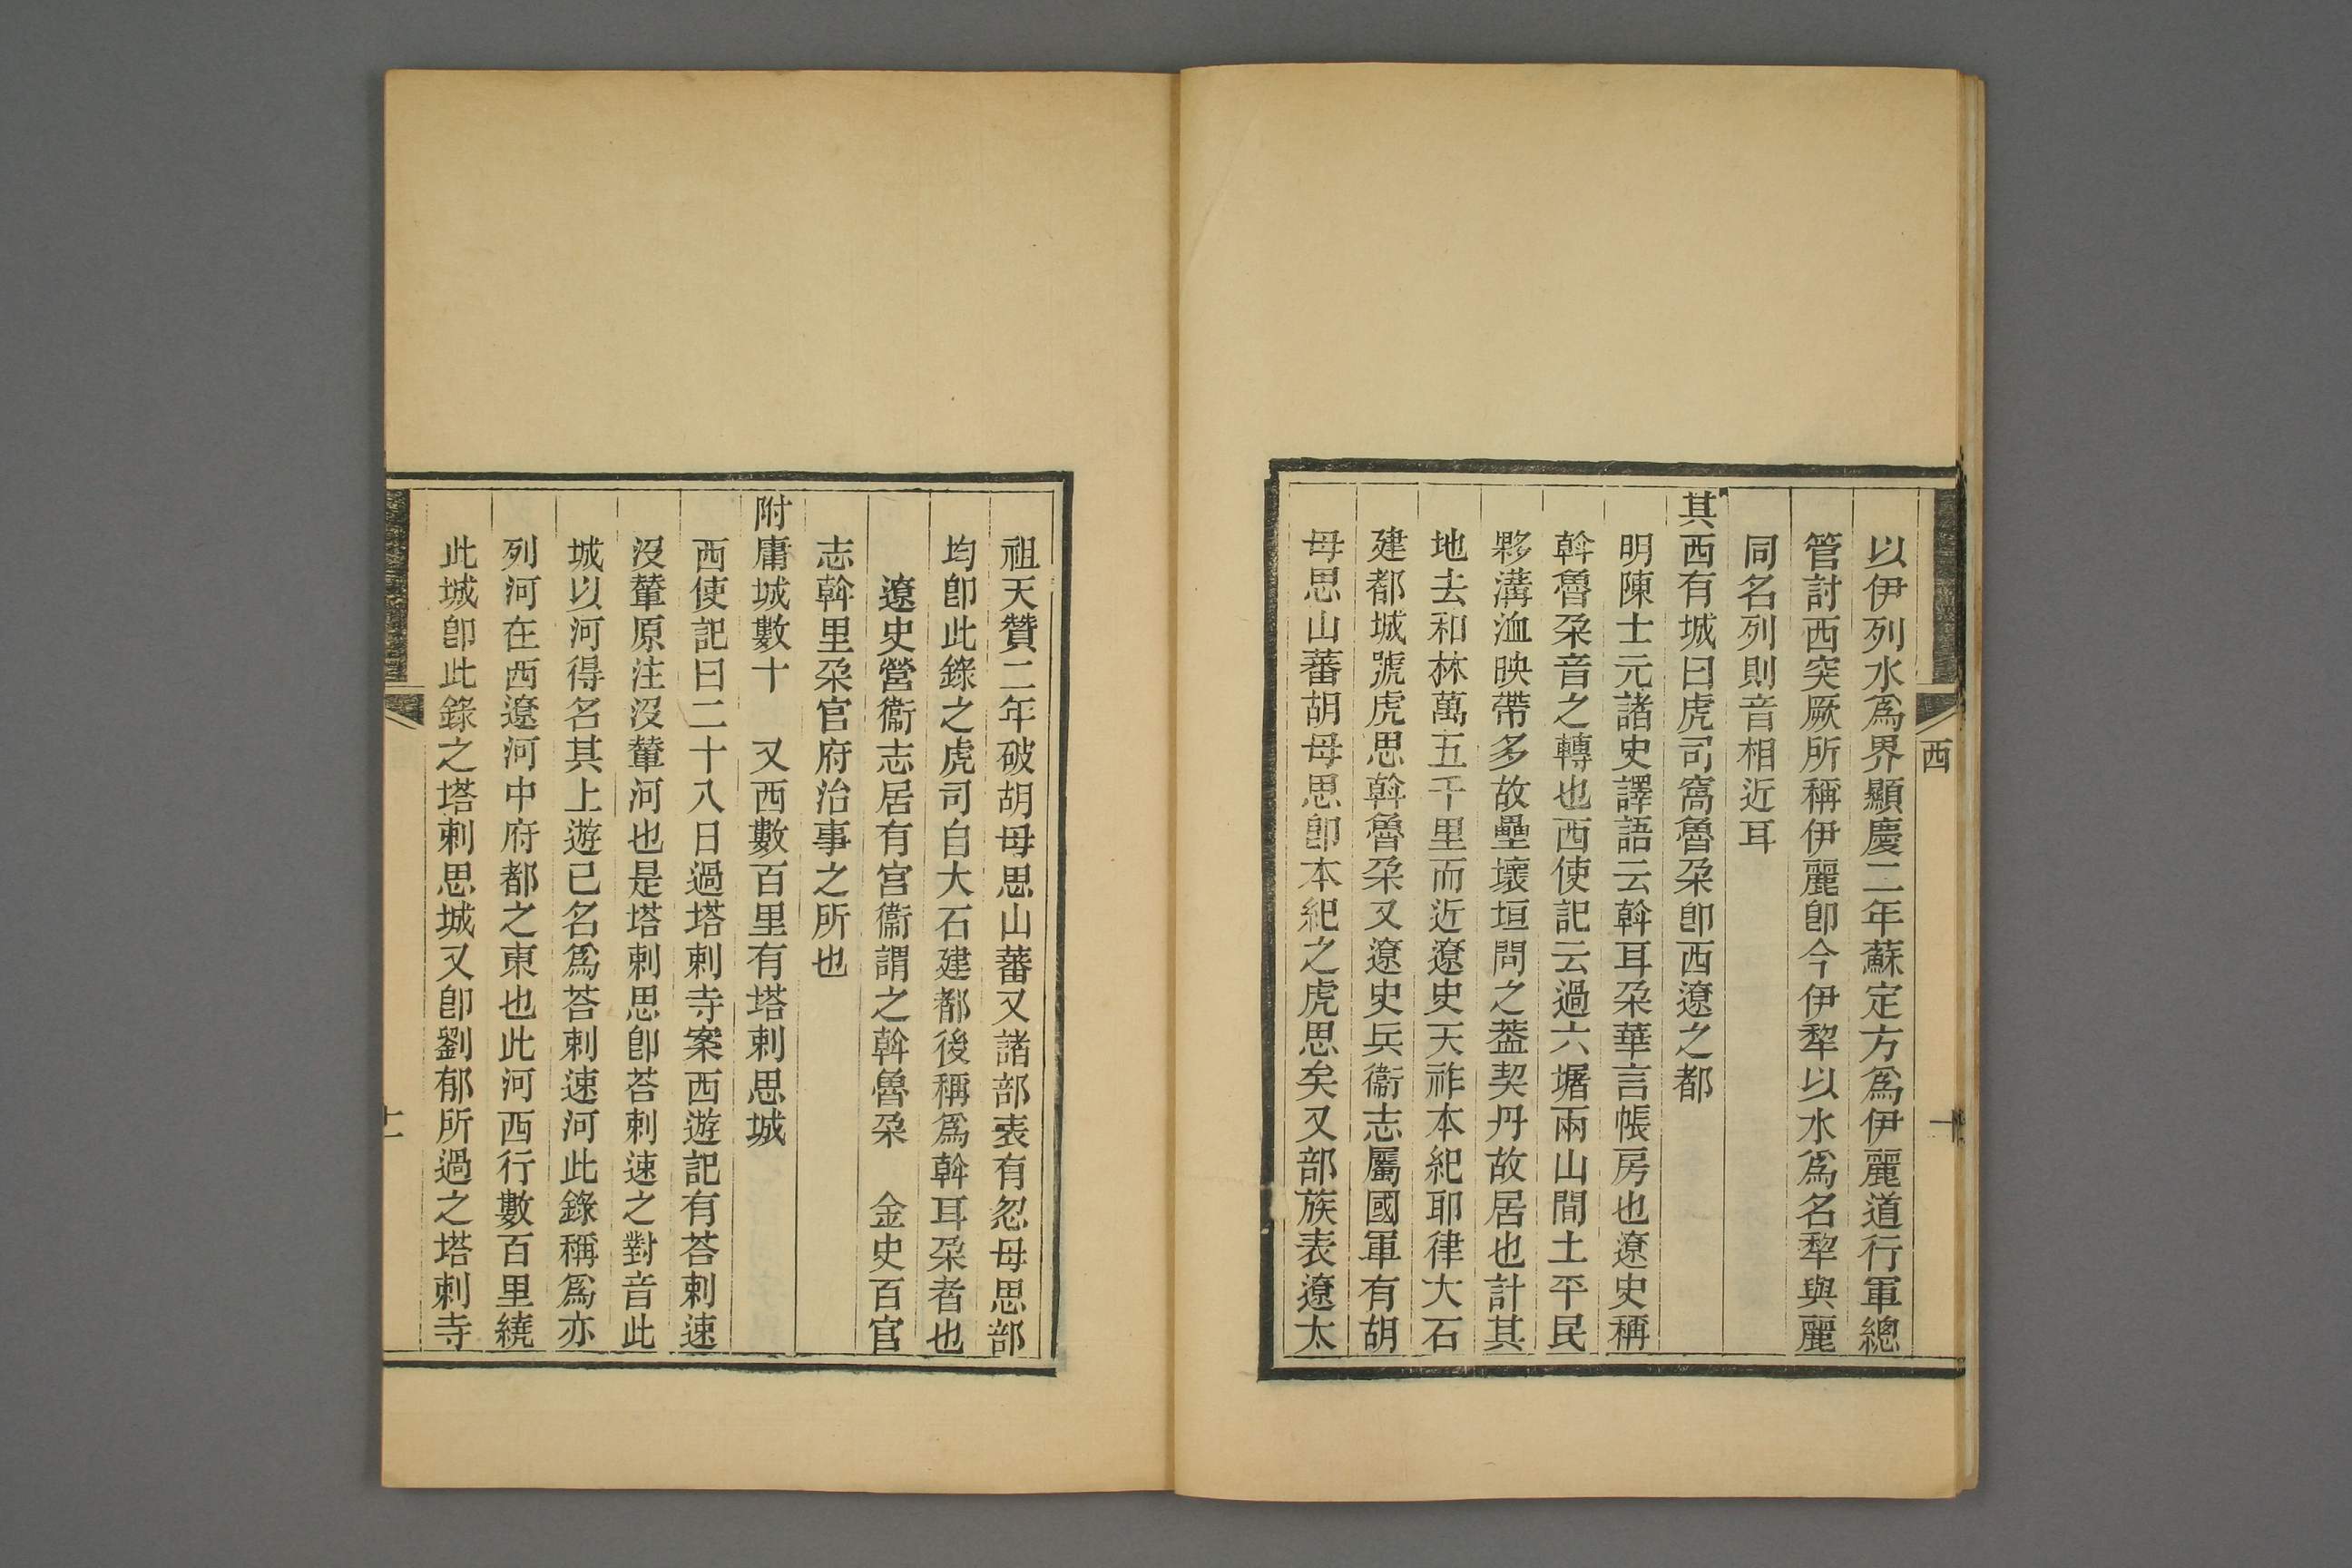 以伊列水爲界顯慶二年蘇定方爲伊麗道行軍總
管討西突厥所稱伊麗卽今伊犂以水爲名犂與麗
同名列則音相近耳
其西有城曰虎司窩魯朶卽西遼之都
明陳士元諸史譯語云斡耳朶華言帳房也遼史稱
斡魯朶音之轉也西使記云過六堰兩山間土平民
夥溝洫映帶多故壘壞垣問之葢契丹故居也計其
地去和林萬五千里而近遼史天祚本紀耶律大石
建都城號虎思斡魯朶又遼史兵衞志屬國軍有胡
母思山蕃胡母思卽本紀之虎思矣又部族表遼太
西
祖天贊二年破胡母思山蕃又諸部表有忽母思部
均卽此錄之虎司自大石建都後稱爲斡耳朶者也
遼史營衞志居有宮衞謂之斡魯朶　金史百官
志斡里朶官府治事之所也
附庸城數十　又西數百里有塔剌思城
西使記曰二十八日過塔剌寺案西遊記有荅剌速
沒輦原注沒輦河也是塔剌思卽荅剌速之對音此
城以河得名其上遊已名爲荅剌速河此錄稱爲亦
列河在西遼河中府都之東也此河西行數百里繞
此城卽此錄之塔剌思城又卽劉郁所過之塔剌寺